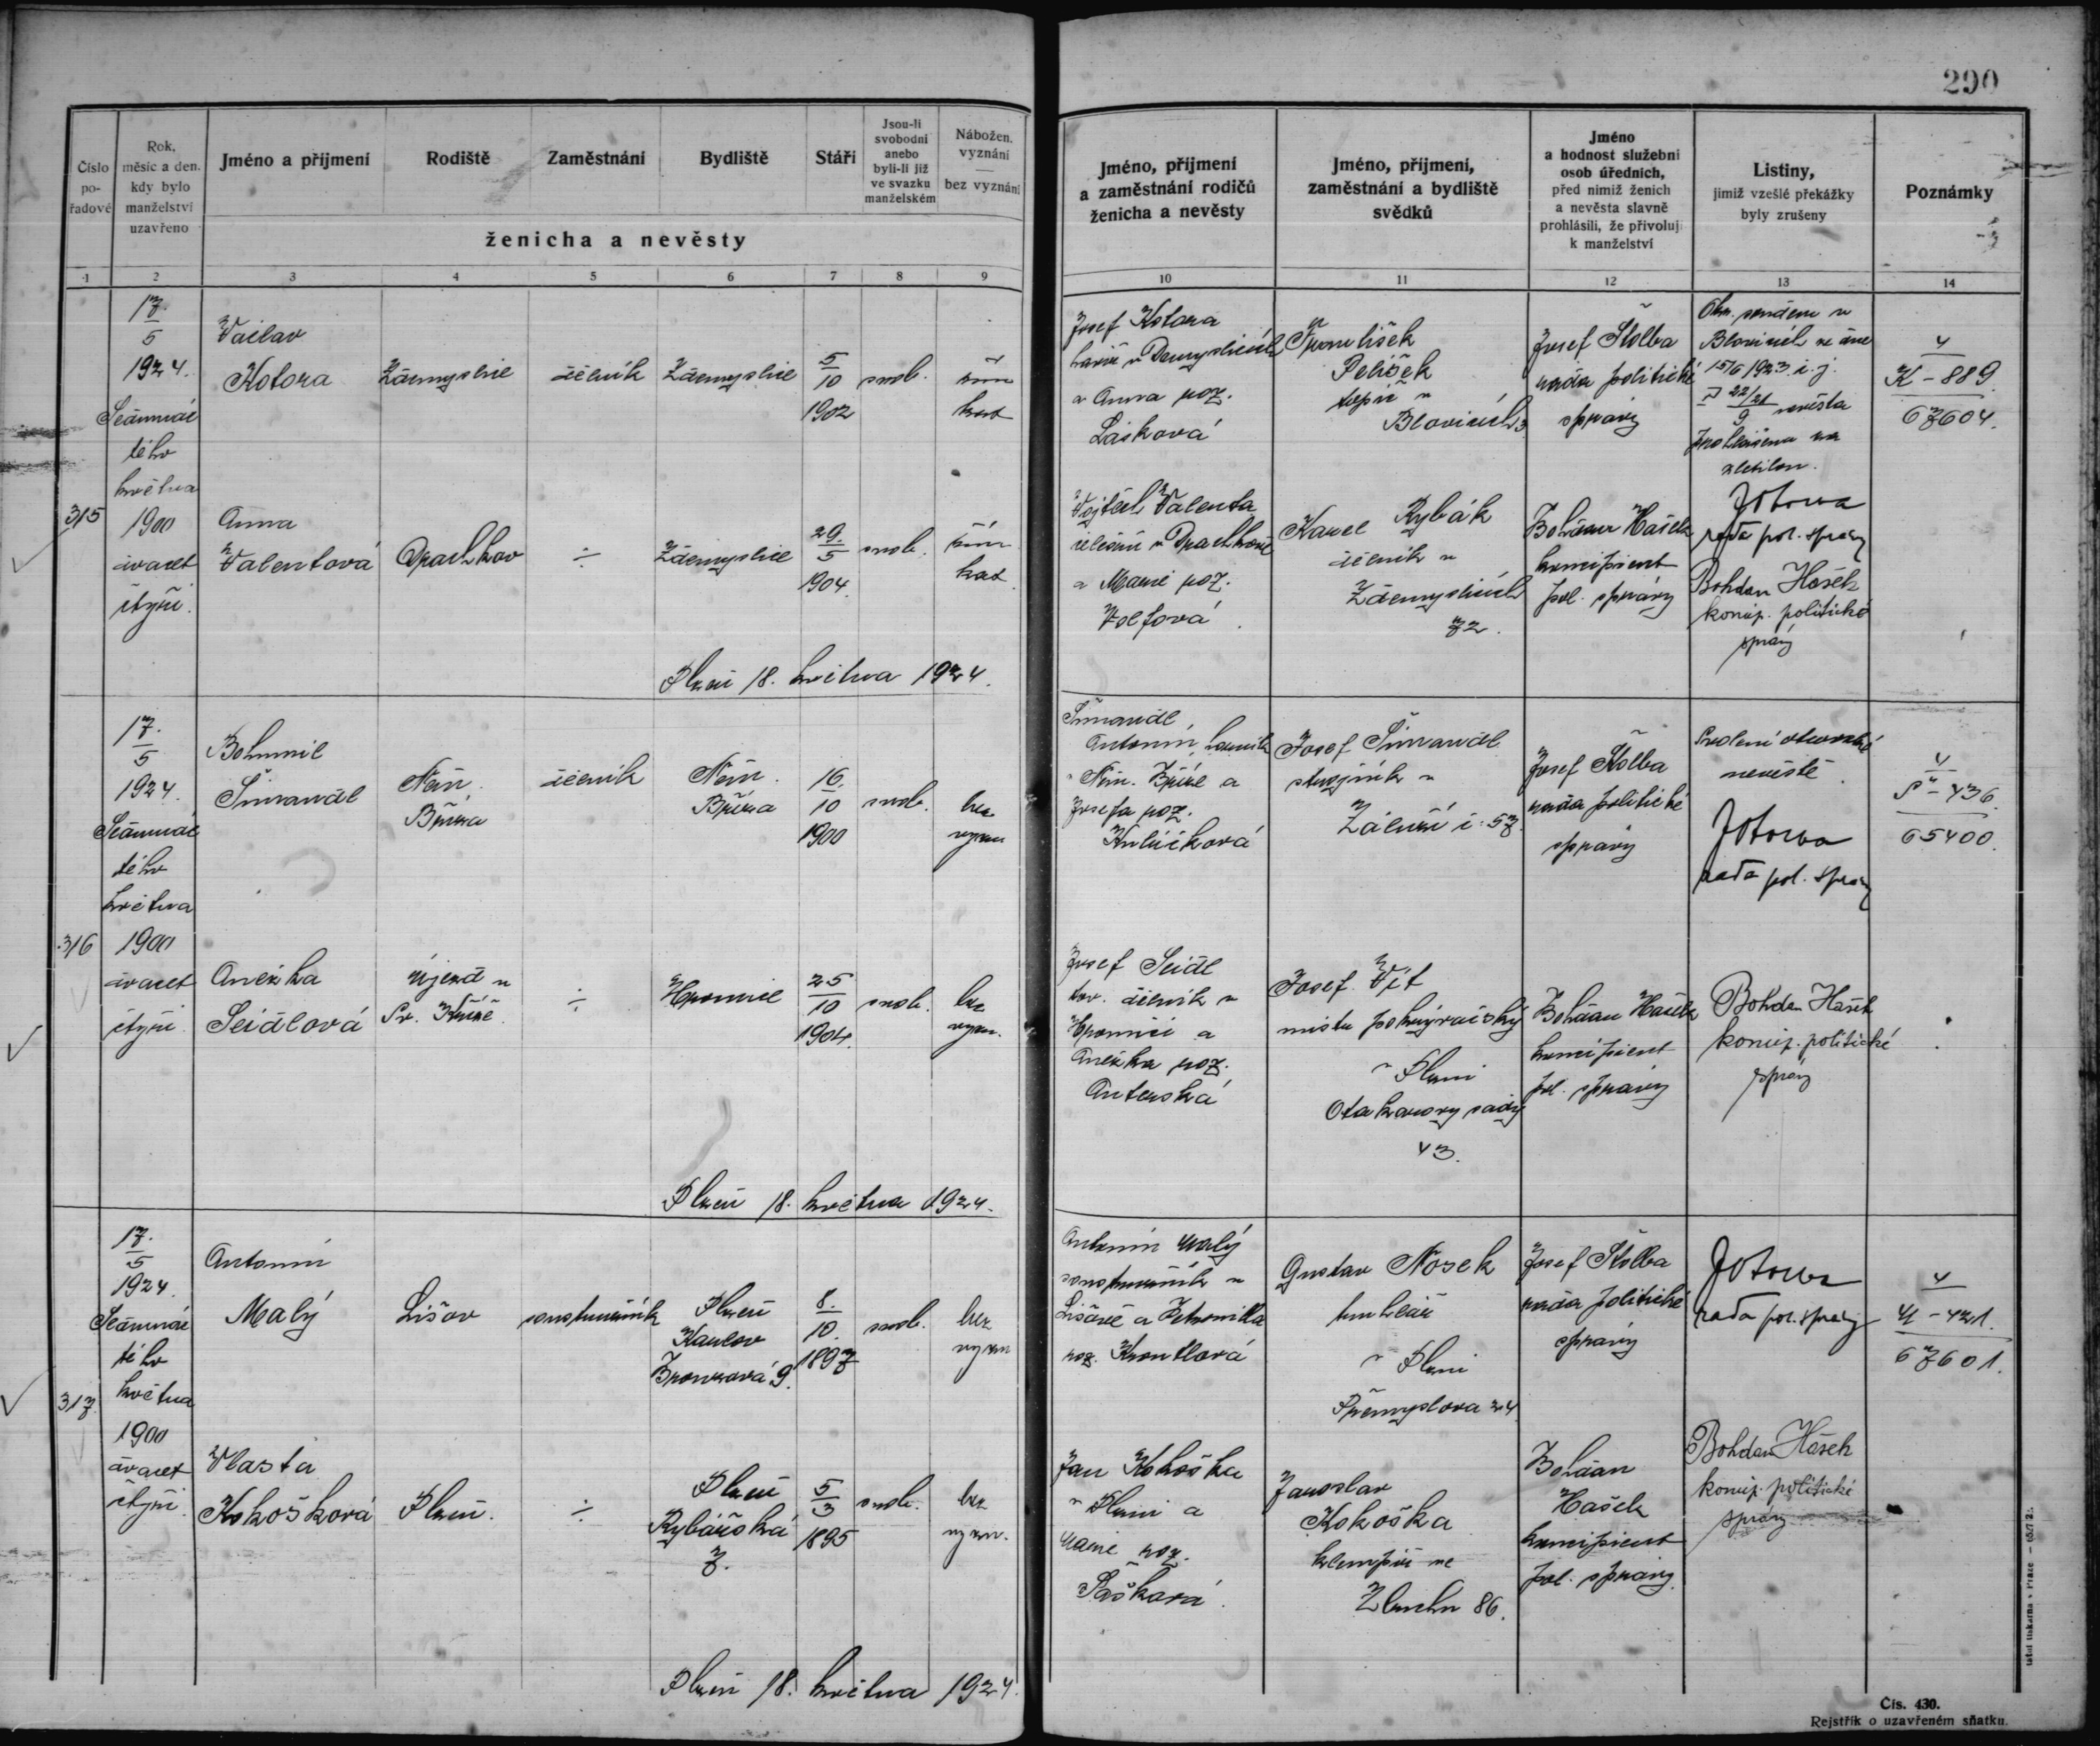 290
Číslo pořadové
Rok, měsíc a den, kdy bylo manželství uzavřeno
Jméno a příjmení
Rodiště
Zaměstnání
Bydliště
Stáří
Jsou-li svobodni anebo byli-li již ve svazku manželském
Nábožen. vyznání — bez vyznání
ženicha a nevěsty
Jméno, příjmení a zaměstnání rodičů ženicha a nevěsty
Jméno, příjmení, zaměstnání a bydliště svědků
Jméno a hodnost služební osob úředních, před nimiž ženich a nevěsta slavně prohlásili, že přivolují k manželství
Listiny, jimiž vzešlé překážky byly zrušeny
Poznámky
1 2 3 4 5 6 7 8 9 10 11 12 13 14
315
17.
5
1924.
Sedmnáctého
května
1900
dvacet
čtyři.
Václav
Kotora
Zdemyslice
dělník
Zdemyslice
5
10
1902
svob.
řím
kat
Josef Kotora
a Anna roz.
Lásková
František
Pelíšek
v
Blovicích
Josef Štolba
rada politické
správy
Blovicích ze dne
15/6 1923 č. j.
22/21
9
nevěsta
prohlášena za
zletilou.
4
K - 889
67604.
Anna
Valentová
Opachkov
÷
Zdemyslice
29.
5
1904.
svob.
řím
kat.
Vojtěch Valenta
a Marie roz.
Volfová
Karel Rybák
dělník v
Zdemyslicích
72.
Bohdan Hašek
koncipient
pol. správy
rada pol. správy
Bohdan Hašek
koncip. politické
správy
Plzeň 18. května 1924.
316
17.
5
1924.
Sedmnáctého
května
1900
dvacet
čtyři.
Bohumil
Šmandl
Něm.
Bříza
dělník
Něm.
Bříza
16.
10
1900
svob.
bez
vyzn
Šmandl
Antonín, horník
v Něm. Bříze a
Josefa roz.
Kulíčková
Josef Šmandl
strojník v
Záluží č. 57.
Josef Štolba
rada politické
správy
Svolení otcovské
nevěstě.
rada pol. správy
4
Š - 436.
65400.
Anežka
Seidlová
Újezd u
Sv. Kříže.
÷
Hromnice
25
10
1904.
svob.
bez
vyzn.
Josef Seidl
tov. dělník v
Hromnici a
Anežka roz.
Anterská
Josef Vít
mistr pokrývačský
v Plzni
Otakarovy sady
43.
Bohdan Hašek
koncipient
pol. správy
Bohdan Hašek
koncip. politické
správy
Plzeň 18. května 1924.
317
17.
5
1924.
Sedmnáctého
května
1900
dvacet
čtyři.
Antonín
Malý
Lišov
soustružník
Plzeň
Karlov
Žronková 9.
8.
10.
1897
svob.
bez
vyzn
Antonín Malý
soustružník v
Lišově a Petronilla
roz.
Gustav Nosek
truhlář
v Plzni
Přemyslova 24
Josef Štolba
rada politické
správy
rada pol. správy
4
M - 421.
67601.
Vlasta
Kokošková
Plzeň.
÷
Plzeň
Rybářská
7.
5
3
1895
svob.
bez
vyzn.
Jan Kokoška
v Plzni a
Marie roz.
Pašková.
Jaroslav
Kokoška
klempíř ve
Zbuchu 86.
Bohdan
Hašek
koncipient
pol. správy.
Bohdan Hašek
koncip. politické
správy
Plzeň 18. května 1924.
Čís. 430.
Rejstřík o uzavřeném sňatku.